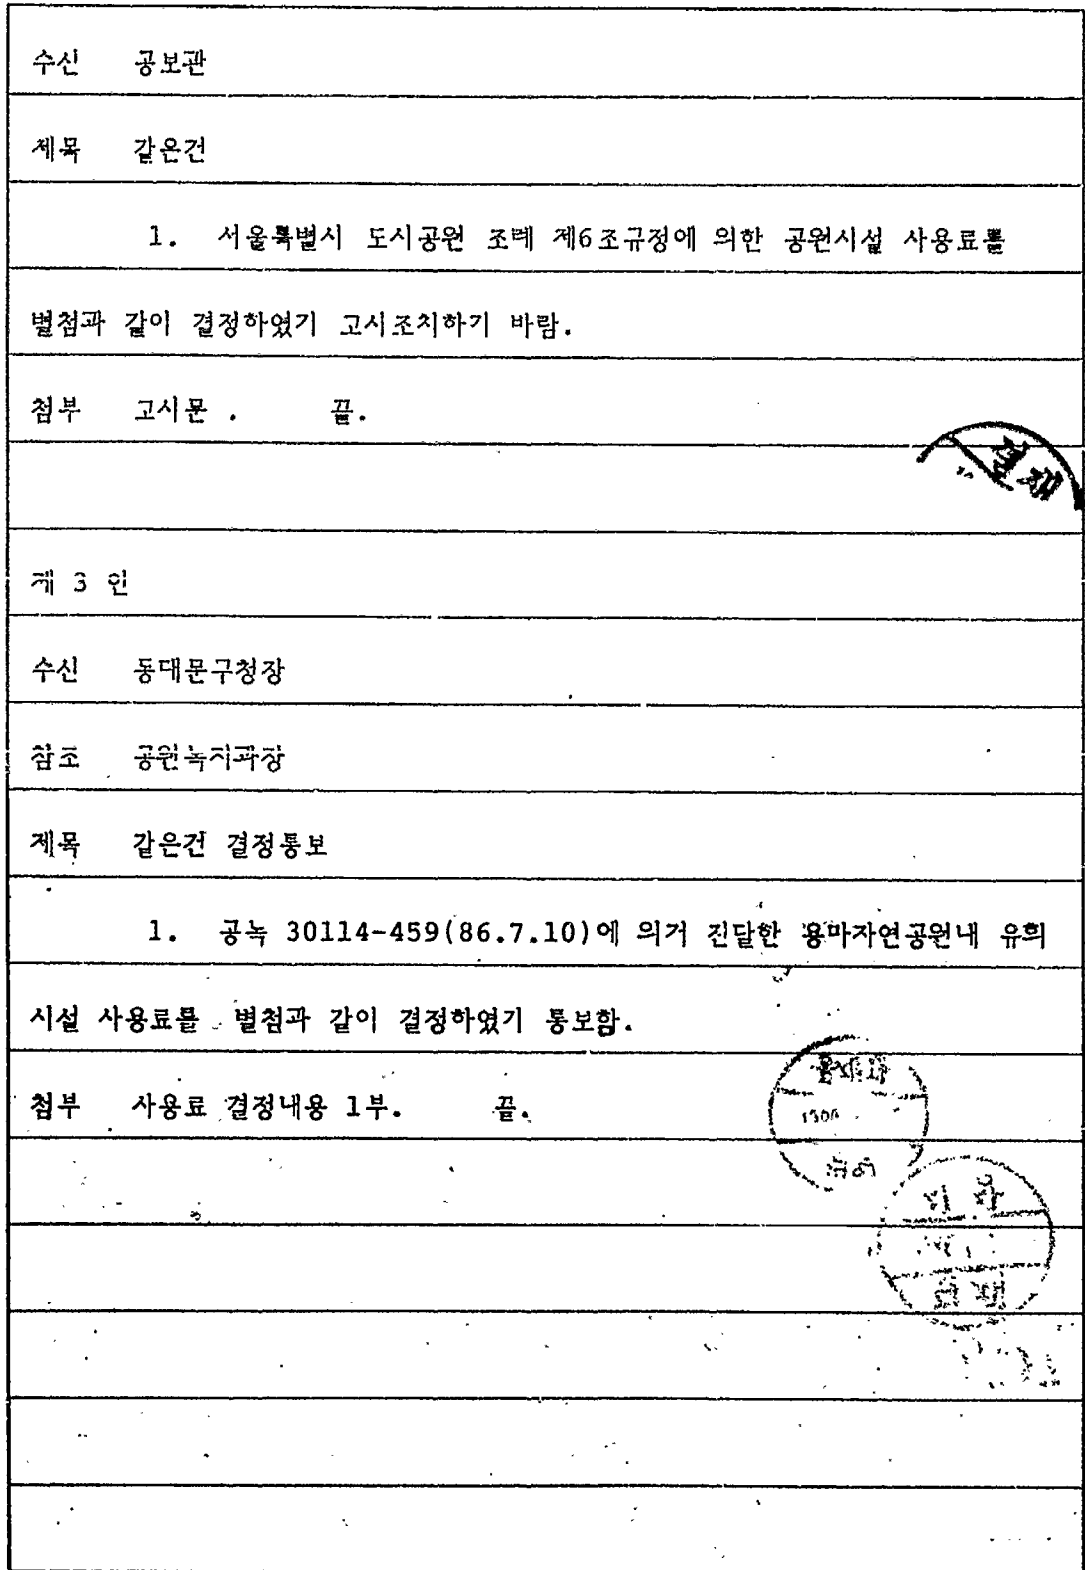 수신 공보관
제목 같은건
1. 서울특별시 도시공원 조례 제6조규정에 의한 공원시설 사용료를
별첨과 같이 결정하였기 고시조치하기 바람.
첨부 고시문 . 끝.
결재
제 3 안
수신 동대문구청장
참조 공원녹지과장
제목 같은건 결정통보
1. 공녹 30114-459(86.7.10)에 의거 진달한 용마자연공원내 유희
시설 사용료를 별첨과 같이 결정하였기 통보함.
첨부 사용료 결정내용 1부. 끝.